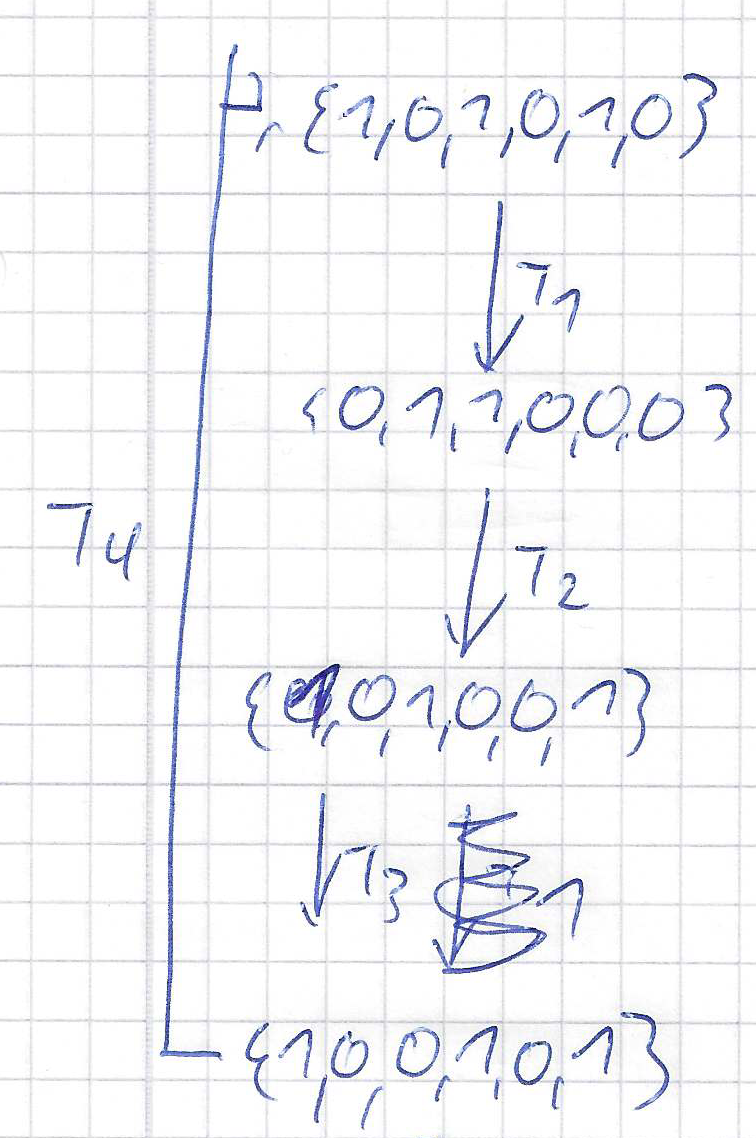 {1,0,1,0,1,0}
T1
{0,1,1,0,0,0}
T4
T2
{1,0,1,0,0,1}
T3 1
{1,0,0,1,0,1}